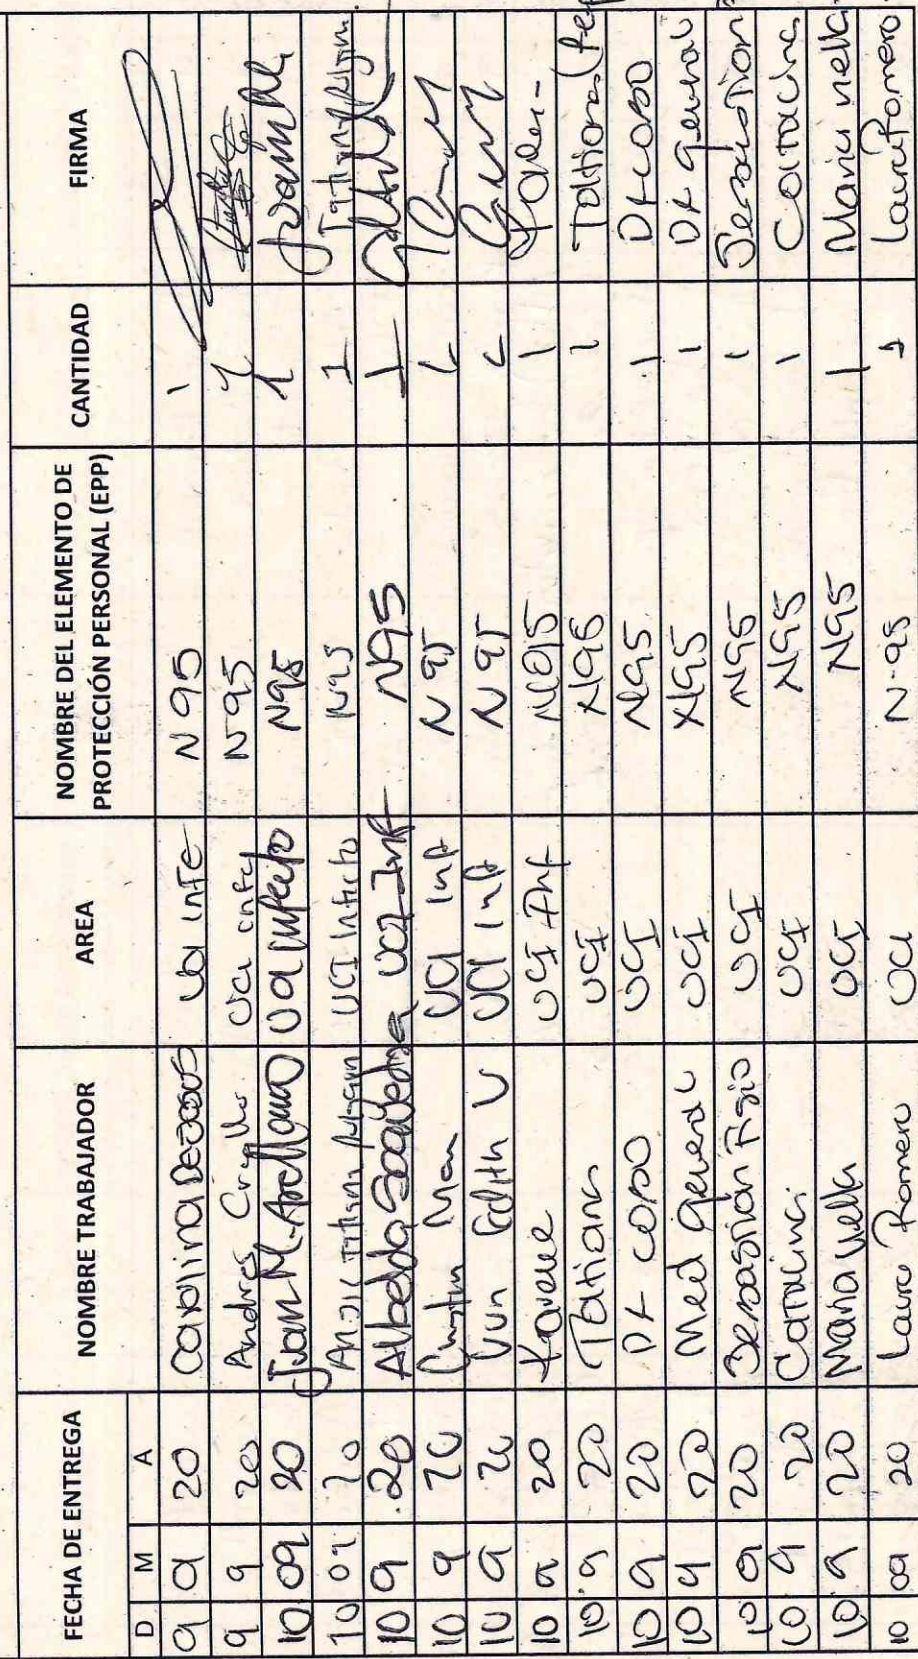 FECHA DE ENTREGA NOMBRE TRABAJADOR AREA NOMBRE DEL ELEMENTO DE PROTECCIÓN PERSONAL (EPP) CANTIDAD FIRMA
D M A
9 9 20 Carolina De Jesus Uci infe N 95 1
9 9 20 Andres Uci infe N95 1
10 09 20 Juan M. Arellano Uci infecto N95 1
10 09 20 Tatiana UCI Infecto N95 1
10 9 20 UCI Inf N95 1
10 9 20 UCI Inf N 95
10 9 20 UCI Inf N 95
10 9 20 Karene UCI Inf N95 1
10 9 20 Tatiana UCI N95 1 Tatiana
10 9 20 Dr Corso UCI N95 1 Dr Corso
10 9 20 Med general UCI N95 1 Dr general
10 9 20 Fisio UCI N95 1
10 9 20 Carolina UCI N95 1 Carolina
10 9 20 Maria Nella UCI N95 1 Maria nella
10 09 20 Laura Romero UCI N-95 1 Laura Romero